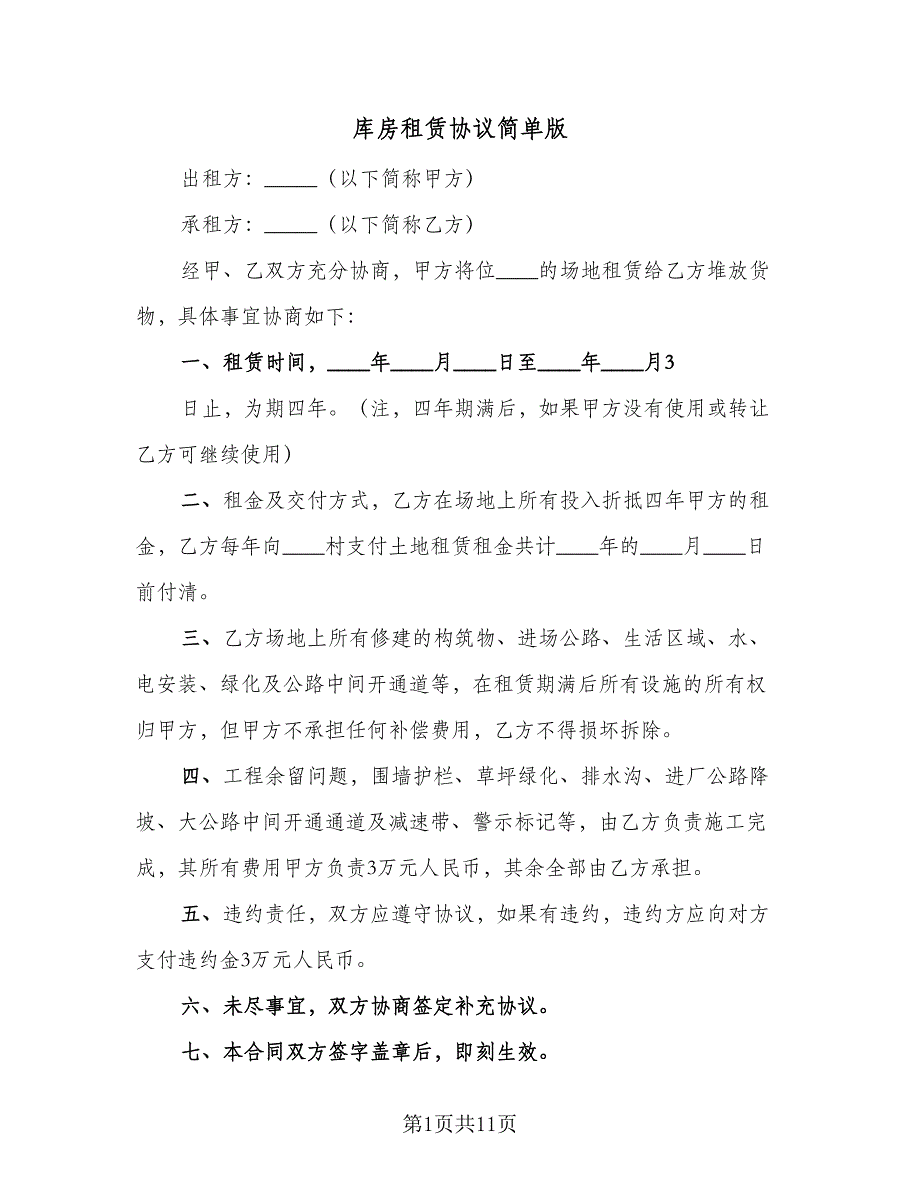 库房租赁协议简单版
出租方：_____（以下简称甲方）
承租方：_____（以下简称乙方）
经甲、乙双方充分协商，甲方将位____的场地租赁给乙方堆放货
物，具体事宜协商如下：
一、租赁时间，____年____月____日至____年____月3
日止，为期四年。（注，四年期满后，如果甲方没有使用或转让
乙方可继续使用）
二、租金及交付方式，乙方在场地上所有投入折抵四年甲方的租
金，乙方每年向____村支付土地租赁租金共计____年的____月____日
前付清。
三、乙方场地上所有修建的构筑物、进场公路、生活区域、水、
电安装、绿化及公路中间开通道等，在租赁期满后所有设施的所有权
归甲方，但甲方不承担任何补偿费用，乙方不得损坏拆除。
四、工程余留问题，围墙护栏、草坪绿化、排水沟、进厂公路降
坡、大公路中间开通通道及减速带、警示标记等，由乙方负责施工完
成，其所有费用甲方负责3万元人民币，其余全部由乙方承担。
五、违约责任，双方应遵守协议，如果有违约，违约方应向对方
支付违约金3万元人民币。
六、未尽事宜，双方协商签定补充协议。
七、本合同双方签字盖章后，即刻生效。
第1页共11页